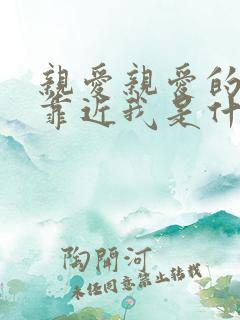 親愛親愛的
靠近我是什
陶開河
未经同意禁止转载